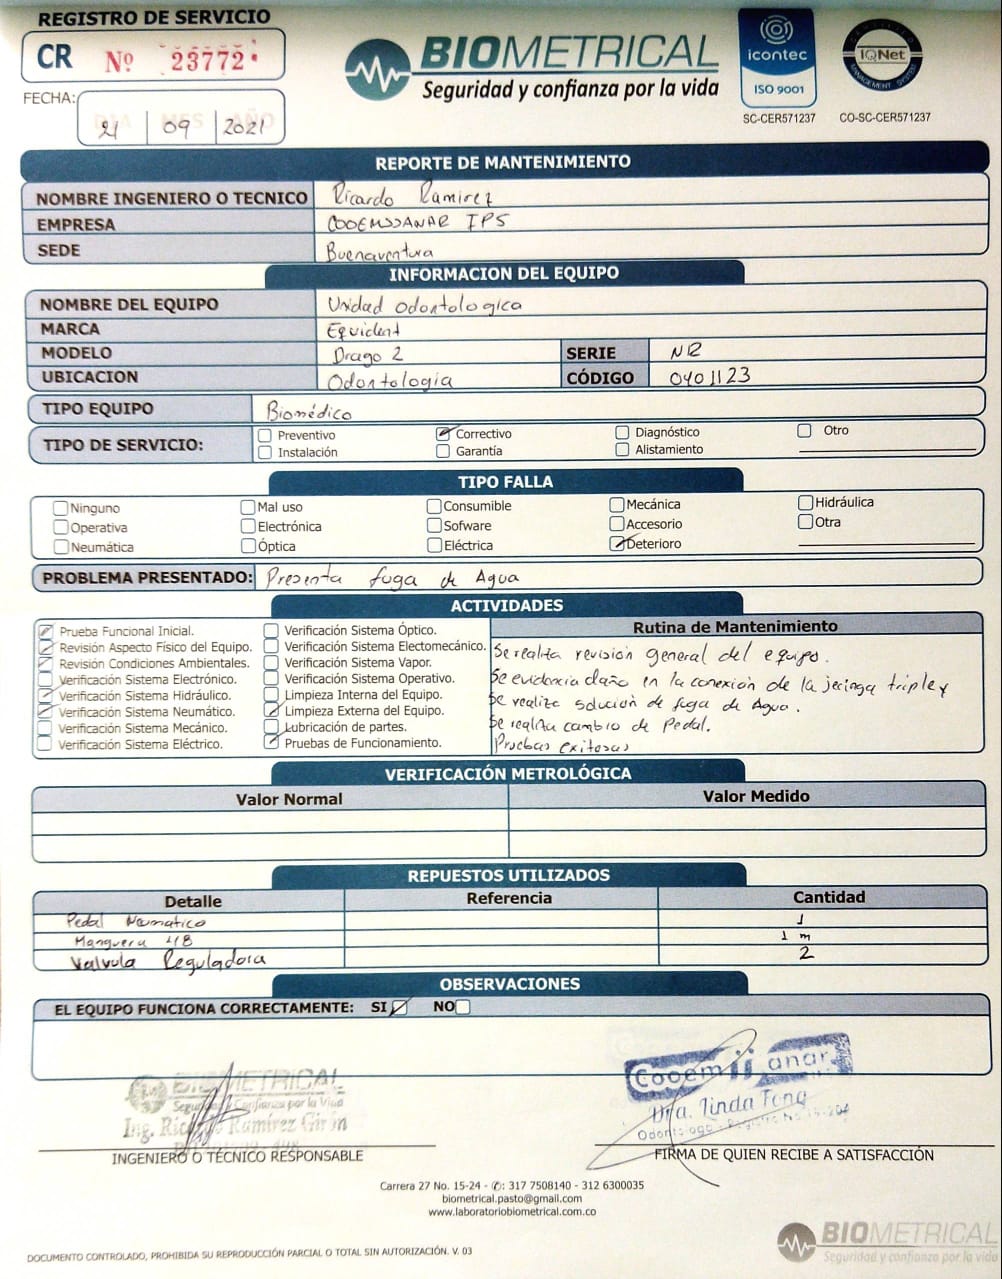 REGISTRO DE SERVICIO
CR Nº 23772
FECHA: DIA MES AÑO
21 09 2021
BIOMETRICAL
Seguridad y confianza por la vida
icontec
ISO 9001
SC-CER571237
IQNet
MANAGEMENT SYSTEM
CO-SC-CER571237
REPORTE DE MANTENIMIENTO
NOMBRE INGENIERO O TECNICO Ricardo Ramirez
EMPRESA COOEMSSANAR IPS
SEDE Buenaventura
INFORMACION DEL EQUIPO
NOMBRE DEL EQUIPO Unidad Odontologica
MARCA Equident
MODELO Drago 2 SERIE NR
UBICACION Odontologia CÓDIGO 0401123
TIPO EQUIPO Biomédico
TIPO DE SERVICIO:
Preventivo Correctivo Diagnóstico Otro
Instalación Garantía Alistamiento
TIPO FALLA
Ninguno Mal uso Consumible Mecánica Hidráulica
Operativa Electrónica Sofware Accesorio Otra
Neumática Óptica Eléctrica Deterioro
PROBLEMA PRESENTADO: Presenta fuga de Agua
ACTIVIDADES
Prueba Funcional Inicial.
Revisión Aspecto Físico del Equipo.
Revisión Condiciones Ambientales.
Verificación Sistema Electrónico.
Verificación Sistema Hidráulico.
Verificación Sistema Neumático.
Verificación Sistema Mecánico.
Verificación Sistema Eléctrico.
Verificación Sistema Óptico.
Verificación Sistema Electomecánico.
Verificación Sistema Vapor.
Verificación Sistema Operativo.
Limpieza Interna del Equipo.
Limpieza Externa del Equipo.
Lubricación de partes.
Pruebas de Funcionamiento.
Rutina de Mantenimiento
Se realiza revisión general del equipo.
Se evidencia daño en la conexión de la jeringa triple y
se realiza solución de fuga de Agua.
Se realiza cambio de Pedal.
Pruebas exitosas
VERIFICACIÓN METROLÓGICA
Valor Normal Valor Medido
REPUESTOS UTILIZADOS
Detalle Referencia Cantidad
Pedal Neumatico 1
Manguera 1 m
Valvula Reguladora 2
OBSERVACIONES
EL EQUIPO FUNCIONA CORRECTAMENTE: SI NO
BIOMETRICAL
Seguridad y Confianza por la Vida
Ing. Ricardo Ramírez Girón
Cooemssanar
Dra. Linda Tong
Odontologo - Registro No
INGENIERO O TÉCNICO RESPONSABLE
FIRMA DE QUIEN RECIBE A SATISFACCIÓN
Carrera 27 No. 15-24 - ✆: 317 7508140 - 312 6300035
biometrical.pasto@gmail.com
www.laboratoriobiometrical.com.co
BIOMETRICAL
Seguridad y confianza por la vida
DOCUMENTO CONTROLADO, PROHIBIDA SU REPRODUCCIÓN PARCIAL O TOTAL SIN AUTORIZACIÓN. V. 03